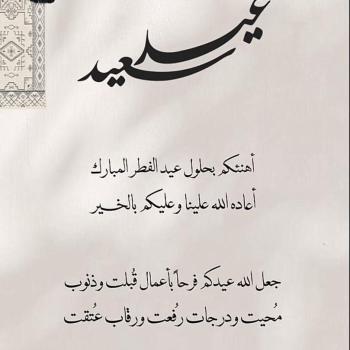 عيد سعيد
أهنئكم بحلول عيد الفطر المبارك
أعاده الله علينا وعليكم بالخير
جعل الله عيدكم فرحاً بأعمال قُبلت وذنوب
مُحيت ودرجات رفُعت ورقاب عُتقت